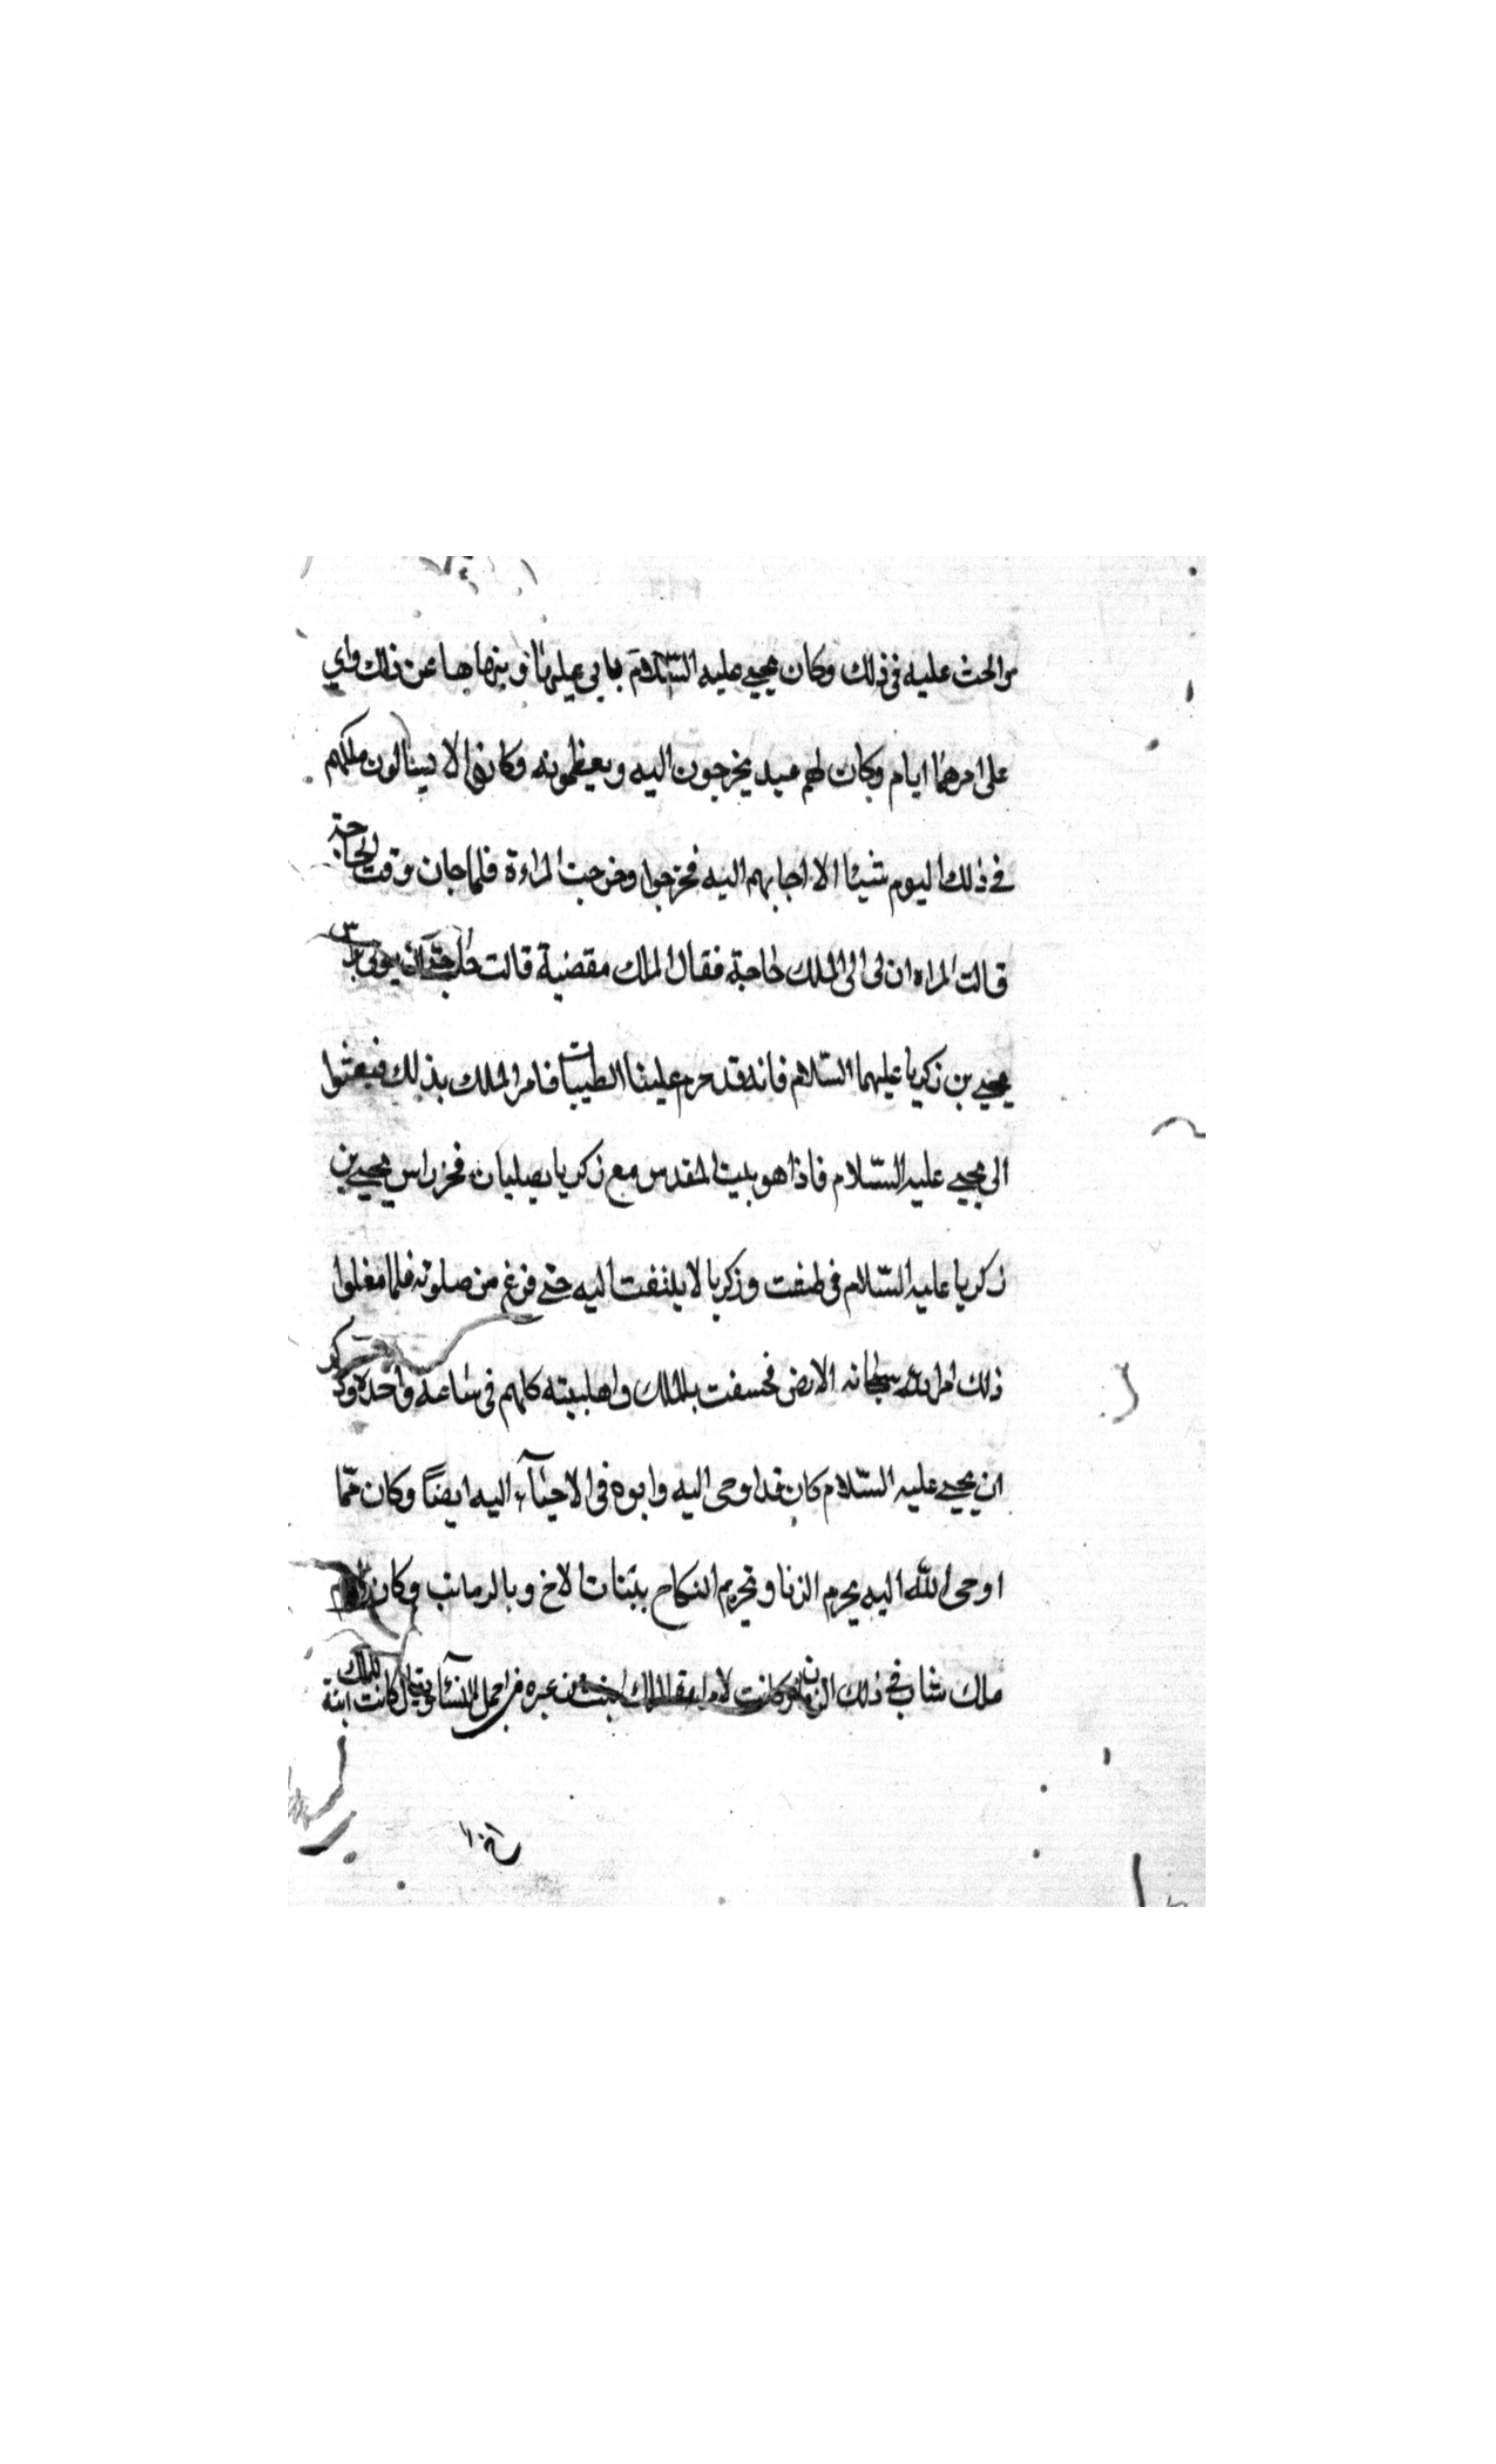 والحث عليه في ذلك وكان يحيى عليه السّلام يابى عليهما وينهاهما عن ذلك واي
على امرهما ايام وكان لهم عيد يخرجون اليه ويعظمونه وكانوا لا يسالون ملكهم
في ذلك اليوم شيئا الا اجابهم اليه فخرجوا وخرجت المراءة فلما حان وقت الحاجة
قالت المراه ان لى الى الملك حاجة فقال الملك مقضية قالت حاجتى ان يوتى براس
يحيى بن زكريا عليهما السّلام فانه قد حرم علينا الطيبات فامر الملك بذلك فبعثوا
الى يحيى عليه السّلام فاذا هو ببيت المقدس مع زكريا يصليان فحز راس يحيى بن
زكريا عليه السّلام في طشت وزكريا لا يلتفت اليه حتى فرغ من صلوته فلما فعلوا
ذلك امر الله سبحانه الارض فخسفت بالملك واهلبيته كلهم في ساعة واحدة وذكر
ان يحيى عليه السّلام كان قد اوحى اليه وابوه في الاحياء اليه ايضاً وكان ممّا
اوحى الله اليه يحرم الزنا وتحريم النكاح ببنات الاخ وبالربائب وكان
ملك شاب في ذلك الزمان وكانت لامراءة الملك ابنت من غيره من اجمل النساء وقيل كانت ابنة الملك